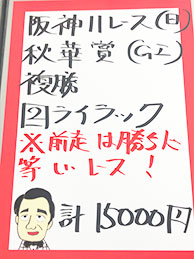 阪神11レース(日)
秋華賞(GI)
複勝
②ライラック
※前走は勝ちに
等しいレース!
計15000円